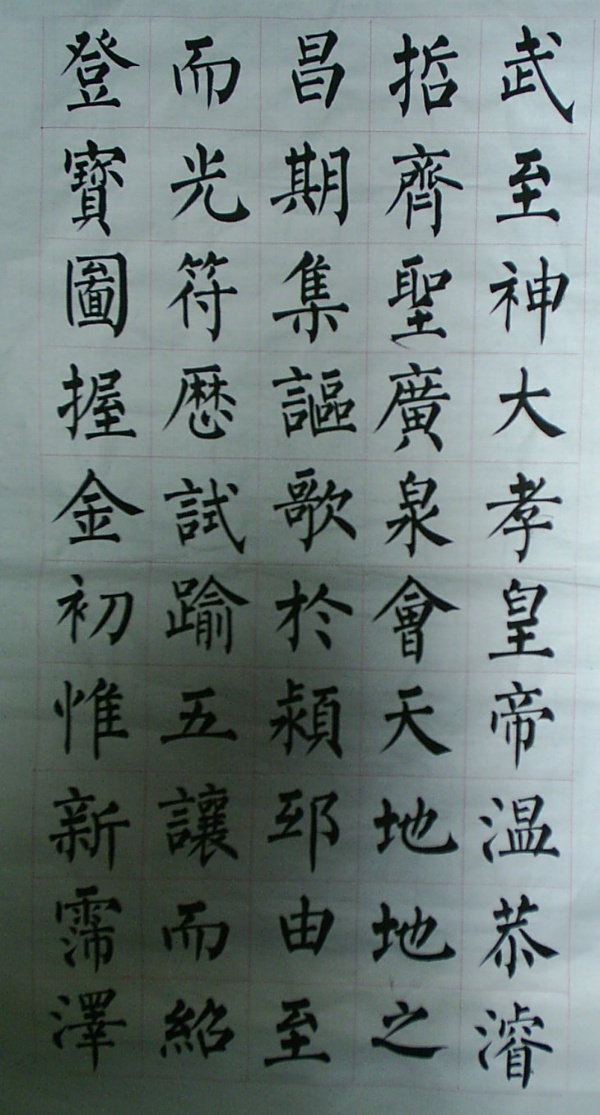 武至神大孝皇帝温恭濬
哲齊聖廣泉會天地地之
昌期集謳歌於潁邸由至
而光符歷試踰五讓而紹
登寶圖握金初惟新霈澤